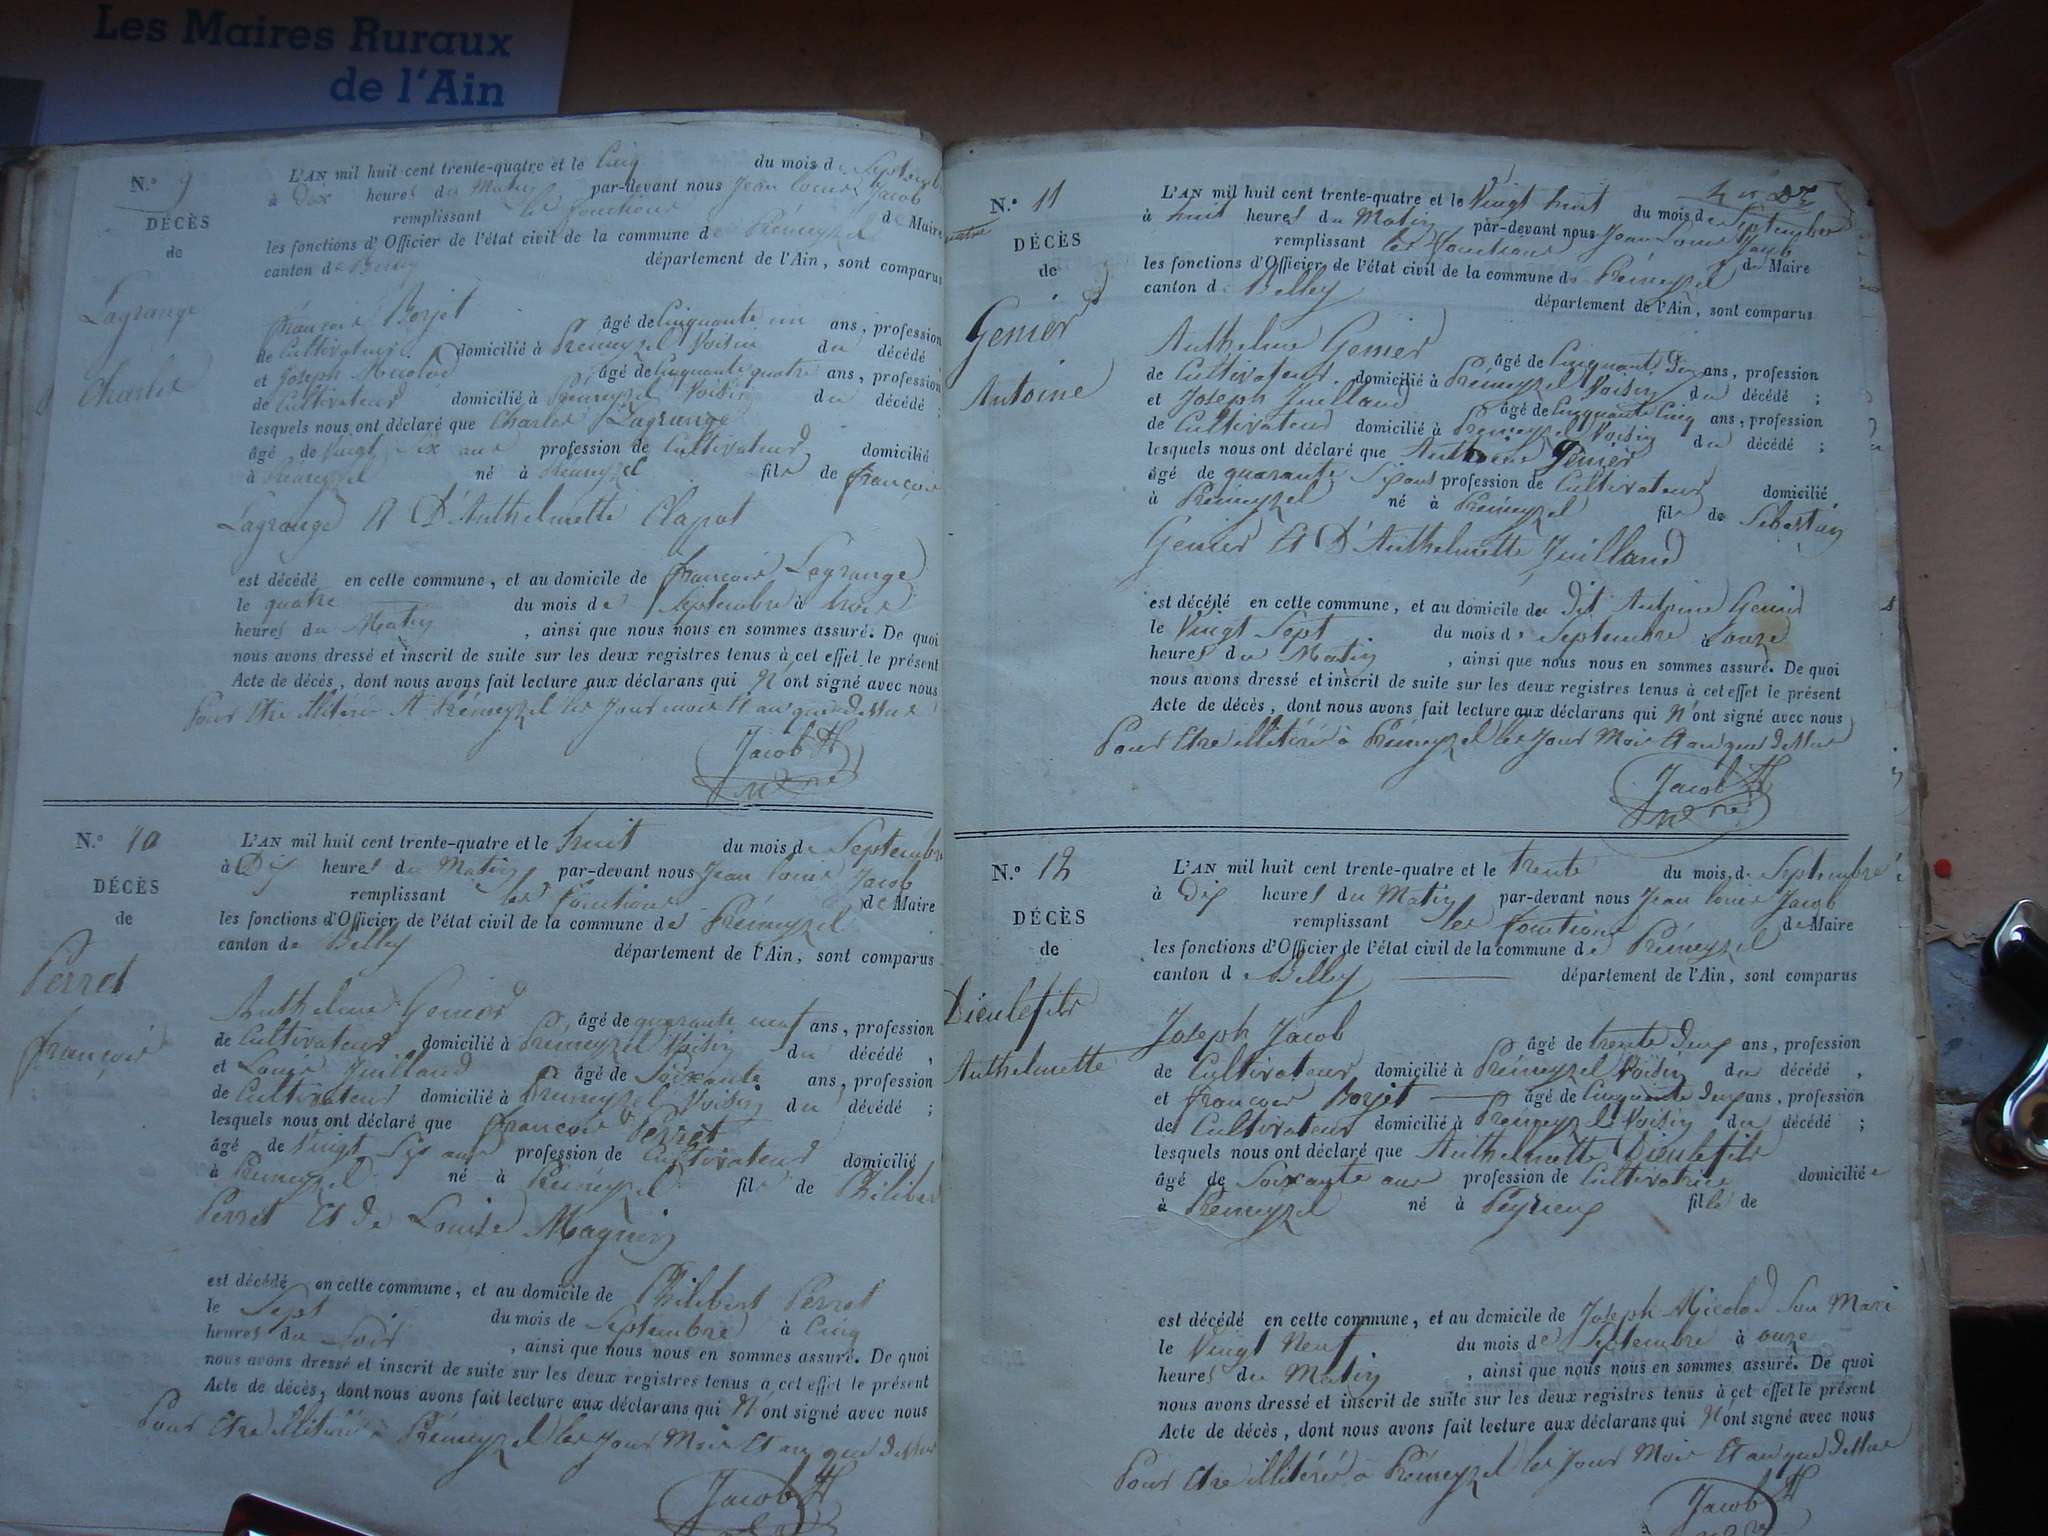 Les Maires Ruraux
de l'Ain
N.° 9
DÉCÈS
de
Lagrange
Charles
L'AN mil huit cent trente-quatre et le Cinq du mois de Septembre
à Dix heures du Matin par-devant nous Jean Louis Jacob
remplissant les fonctions de Maire
les fonctions d'Officier de l'état civil de la commune de Prémeyzel
canton de Belley département de l'Ain, sont comparus
François Borjet âgé de Cinquante un ans, profession
de Cultivateur domicilié à Prémeyzel Voisin du décédé
et Joseph âgé de Cinquante quatre ans, profession
de Cultivateur domicilié à Prémeyzel Voisin du décédé ;
lesquels nous ont déclaré que Charles Lagrange
âgé de Vingt Six ans profession de Cultivateur domicilié
à Prémeyzel né à Prémeyzel fils de François
Lagrange Et D'Anthelmette Clapot
est décédé en cette commune, et au domicile de François Lagrange
le quatre du mois de Septembre à trois
heures du Matin , ainsi que nous nous en sommes assuré. De quoi
nous avons dressé et inscrit de suite sur les deux registres tenus à cet effet le présent
Acte de décès, dont nous avons fait lecture aux déclarans qui N'ont signé avec nous
Pour Etre illitéré A Prémeyzel les Jour mois Et an que dessus
Jacob
N.° 10
DÉCÈS
de
Perret
François
L'AN mil huit cent trente-quatre et le huit du mois de Septembre
à Dix heures du Matin par-devant nous Jean Louis Jacob
remplissant les fonctions de Maire
les fonctions d'Officier de l'état civil de la commune de Prémeyzel
canton de Belley département de l'Ain, sont comparus
Anthelme Genier âgé de quarante neuf ans, profession
de Cultivateur domicilié à Prémeyzel Voisin du décédé ,
et Louis Juilland âgé de Soixante ans, profession
de Cultivateur domicilié à Prémeyzel Voisin du décédé ;
lesquels nous ont déclaré que François Perret
âgé de Vingt Six ans profession de Cultivateur domicilié
à Prémeyzel né à Prémeyzel fils de Philibert
Perret Et de Louise Magnin
est décédé en cette commune, et au domicile de Philibert Perret
le Sept du mois de Septembre à Cinq
heures du Soir , ainsi que nous nous en sommes assuré. De quoi
nous avons dressé et inscrit de suite sur les deux registres tenus à cet effet le présent
Acte de décès, dont nous avons fait lecture aux déclarans qui N'ont signé avec nous
Pour Etre illitéré à Prémeyzel les Jour Mois Et an que dessus
Jacob
N.° 11
DÉCÈS
de
Genier
Antoine
L'AN mil huit cent trente-quatre et le Vingt huit du mois de Septembre
à huit heures du Matin par-devant nous Jean Louis Jacob
remplissant les fonctions de Maire
les fonctions d'Officier de l'état civil de la commune de Prémeyzel
canton de Belley département de l'Ain, sont comparus
Anthelme Genier âgé de Cinquante Dix ans, profession
de Cultivateur domicilié à Prémeyzel Voisin du décédé ;
et Joseph Juilland âgé de Cinquante Cinq ans, profession
de Cultivateur domicilié à Prémeyzel Voisin du décédé ;
lesquels nous ont déclaré que Antoine Genier
âgé de quarante Six ans profession de Cultivateur domicilié
à Prémeyzel né à Prémeyzel fils de Sébastien
Genier Et D'Anthelmette Juilland
est décédé en cette commune, et au domicile du dit Antoine Genier
le Vingt Sept du mois de Septembre à onze
heures du Matin , ainsi que nous nous en sommes assuré. De quoi
nous avons dressé et inscrit de suite sur les deux registres tenus à cet effet le présent
Acte de décès, dont nous avons fait lecture aux déclarans qui N'ont signé avec nous
Pour Etre illitéré à Prémeyzel les Jour Mois Et an que dessus
Jacob
N.° 12
DÉCÈS
de
Dieulefils
Anthelmette
L'AN mil huit cent trente-quatre et le trente du mois de Septembre
à Dix heures du Matin par-devant nous Jean Louis Jacob
remplissant les fonctions de Maire
les fonctions d'Officier de l'état civil de la commune de Prémeyzel
canton de Belley département de l'Ain, sont comparus
Joseph Jacob âgé de trente Deux ans, profession
de Cultivateur domicilié à Prémeyzel Voisin du décédé ,
et François Borjet âgé de Cinquante Deux ans, profession
de Cultivateur domicilié à Prémeyzel Voisin du décédé ;
lesquels nous ont déclaré que Anthelmette Dieulefils
âgé de Soixante ans profession de Cultivatrice domiciliée
à Prémeyzel né à Peyrieux fille de
est décédé en cette commune, et au domicile de Joseph Micolod Son Mari
le Vingt Neuf du mois de Septembre à onze
heures du Matin , ainsi que nous nous en sommes assuré. De quoi
nous avons dressé et inscrit de suite sur les deux registres tenus à cet effet le présent
Acte de décès, dont nous avons fait lecture aux déclarans qui N'ont signé avec nous
Pour Etre illitéré à Prémeyzel les Jour Mois Et an que dessus
Jacob